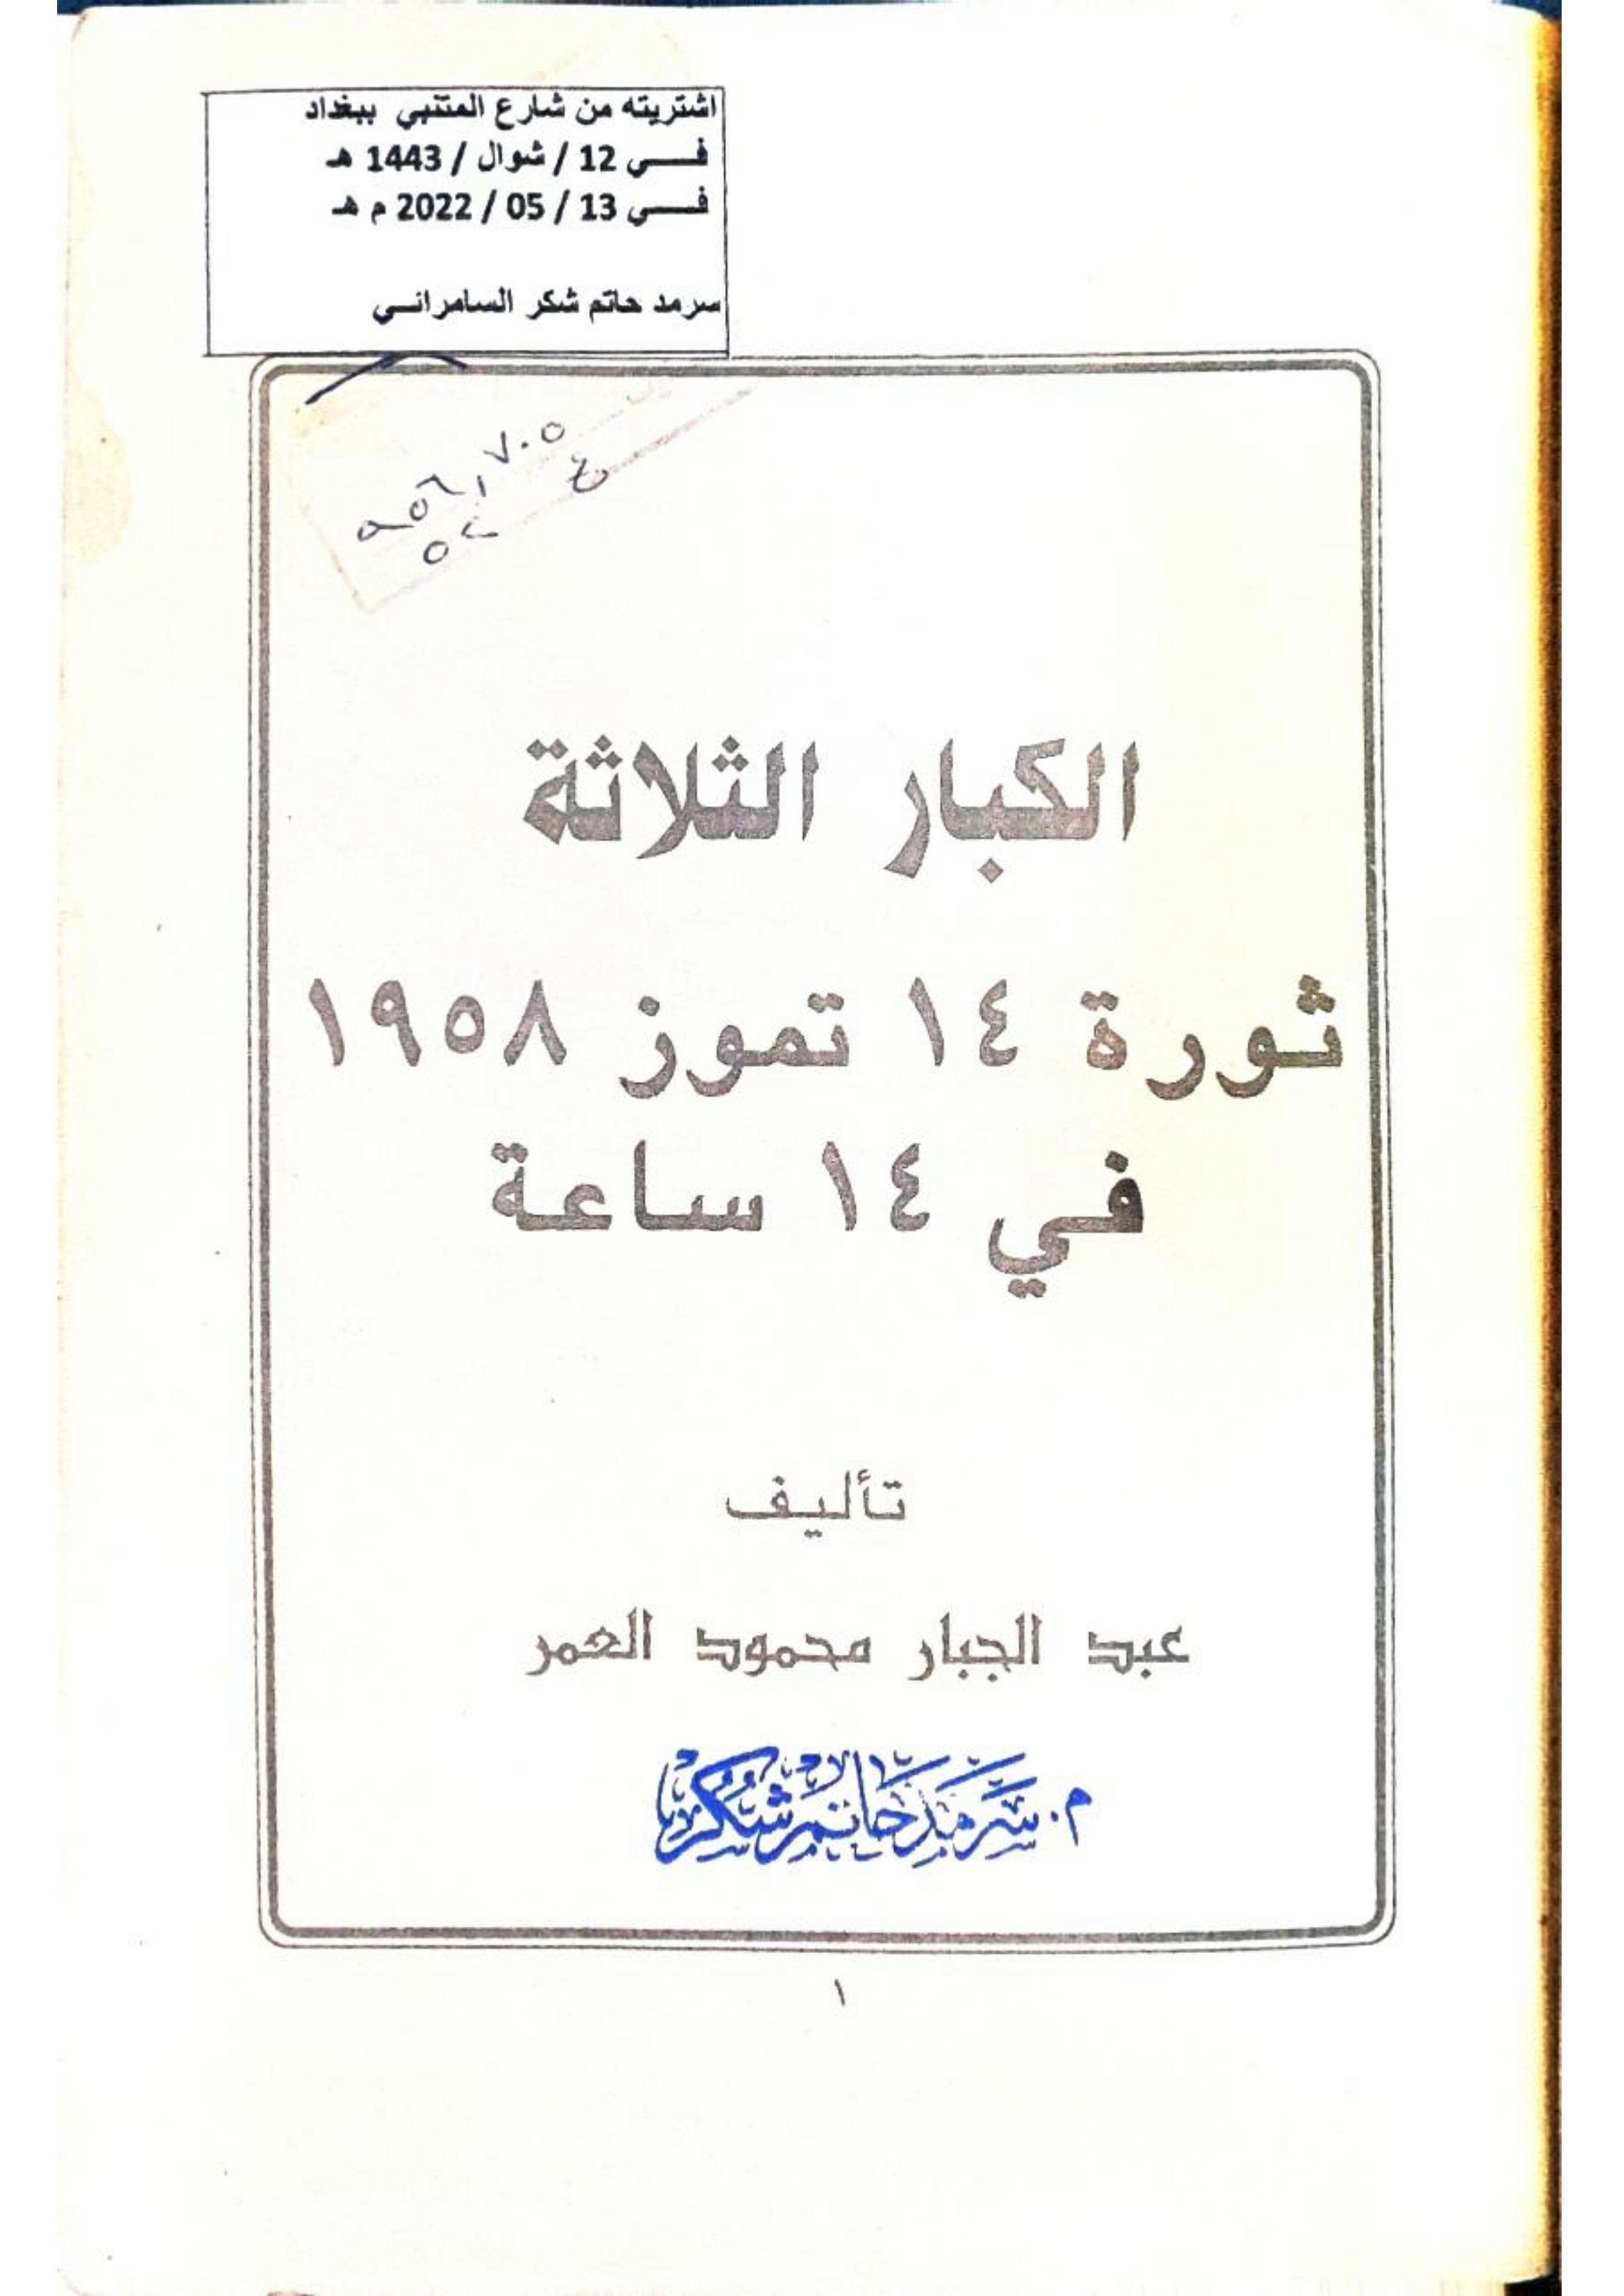 اشتريته من شارع المتنبي ببغداد
فـــي 12 / شوال / 1443 هـ
فـــي 13 / 05 / 2022 م هـ
سرمد حاتم شكر السامرائـــي
الكبار الثلاثة
ثورة ١٤ تموز ١٩٥٨
في ١٤ ساعة
تأليف
عبد الجبار محمود العمر
م. سرمد حاتم شكر
١